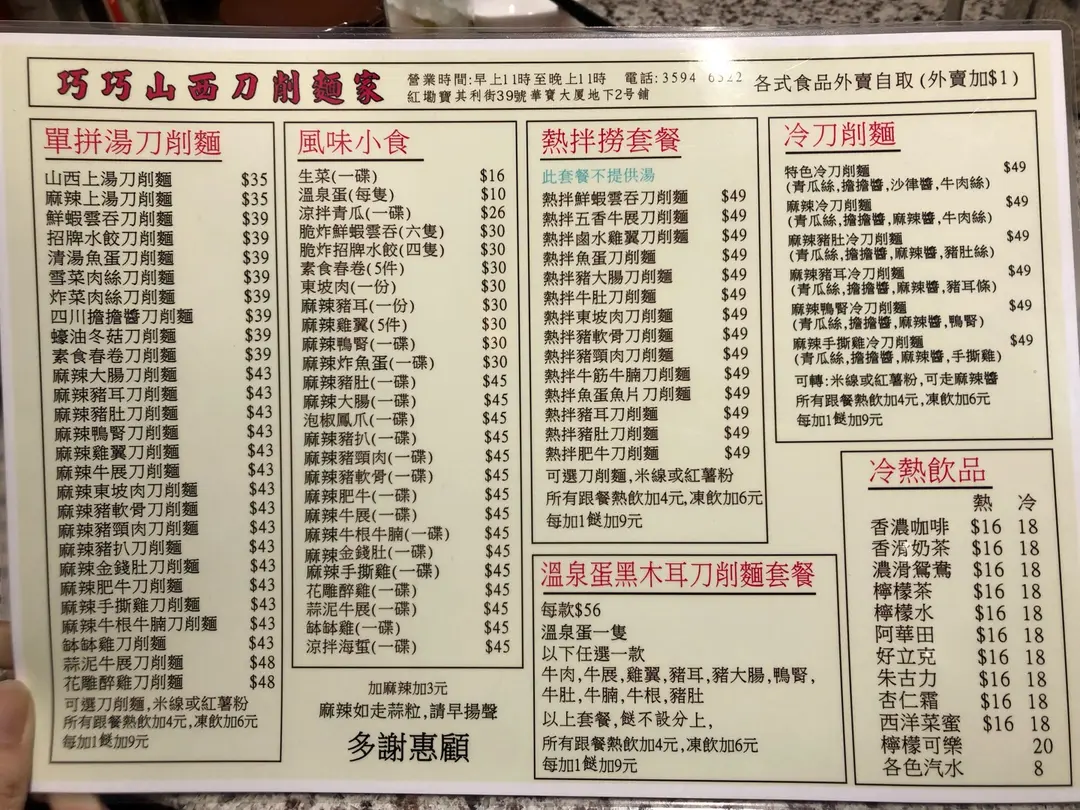 巧巧山西刀削麵家
營業時間:早上11時至晚上11時 電話:3594 6522
紅磡寶其利街39號華寶大厦地下2号鋪
各式食品外賣自取(外賣加$1)
單拼湯刀削麵
山西上湯刀削麵 $35
麻辣上湯刀削麵 $35
鮮蝦雲吞刀削麵 $39
招牌水餃刀削麵 $39
清湯魚蛋刀削麵 $39
雪菜肉絲刀削麵 $39
炸菜肉絲刀削麵 $39
四川擔擔醬刀削麵 $39
蠔油冬菇刀削麵 $39
素食春卷刀削麵 $39
麻辣大腸刀削麵 $43
麻辣豬耳刀削麵 $43
麻辣豬肚刀削麵 $43
麻辣鴨腎刀削麵 $43
麻辣雞翼刀削麵 $43
麻辣牛展刀削麵 $43
麻辣東坡肉刀削麵 $43
麻辣豬軟骨刀削麵 $43
麻辣豬頸肉刀削麵 $43
麻辣豬扒刀削麵 $43
麻辣金錢肚刀削麵 $43
麻辣肥牛刀削麵 $43
麻辣手撕雞刀削麵 $43
麻辣牛根牛腩刀削麵 $43
缽缽雞刀削麵 $43
蒜泥牛展刀削麵 $48
花雕醉雞刀削麵 $48
可選刀削麵,米線或紅薯粉
所有跟餐熱飲加4元,凍飲加6元
每加1餸加9元
風味小食
生菜(一碟) $16
溫泉蛋(每隻) $10
涼拌青瓜(一碟) $26
脆炸鮮蝦雲吞(六隻) $30
脆炸招牌水餃(四隻) $30
素食春卷(5件) $30
東坡肉(一份) $30
麻辣豬耳(一份) $30
麻辣雞翼(5件) $30
麻辣鴨腎(一碟) $30
麻辣炸魚蛋(一碟) $30
麻辣豬肚(一碟) $45
麻辣大腸(一碟) $45
泡椒鳳爪(一碟) $45
麻辣豬扒(一碟) $45
麻辣豬頸肉(一碟) $45
麻辣豬軟骨(一碟) $45
麻辣肥牛(一碟) $45
麻辣牛展(一碟) $45
麻辣牛根牛腩(一碟) $45
麻辣金錢肚(一碟) $45
麻辣手撕雞(一碟) $45
花雕醉雞(一碟) $45
蒜泥牛展(一碟) $45
缽缽雞(一碟) $45
涼拌海蜇(一碟) $45
加麻辣加3元
麻辣如走蒜粒,請早揚聲
多謝惠顧
熱拌撈套餐
此套餐不提供湯
熱拌鮮蝦雲吞刀削麵 $49
熱拌五香牛展刀削麵 $49
熱拌鹵水雞翼刀削麵 $49
熱拌魚蛋刀削麵 $49
熱拌豬大腸刀削麵 $49
熱拌牛肚刀削麵 $49
熱拌東坡肉刀削麵 $49
熱拌豬軟骨刀削麵 $49
熱拌豬頸肉刀削麵 $49
熱拌牛筋牛腩刀削麵 $49
熱拌魚蛋魚片刀削麵 $49
熱拌豬耳刀削麵 $49
熱拌豬肚刀削麵 $49
熱拌肥牛刀削麵 $49
可選刀削麵,米線或紅薯粉
所有跟餐熱飲加4元,凍飲加6元
每加1餸加9元
溫泉蛋黑木耳刀削麵套餐
每款$56
溫泉蛋一隻
以下任選一款
牛肉,牛展,雞翼,豬耳,豬大腸,鴨腎,
牛肚,牛腩,牛根,豬肚
以上套餐,餸不設分上,
所有跟餐熱飲加4元,凍飲加6元
每加1餸加9元
冷刀削麵
特色冷刀削麵 $49
(青瓜絲,擔擔醬,沙律醬,牛肉絲)
麻辣冷刀削麵 $49
(青瓜絲,擔擔醬,麻辣醬,牛肉絲)
麻辣豬肚冷刀削麵 $49
(青瓜絲,擔擔醬,麻辣醬,豬肚絲)
麻辣豬耳冷刀削麵 $49
(青瓜絲,擔擔醬,麻辣醬,豬耳條)
麻辣鴨腎冷刀削麵 $49
(青瓜絲,擔擔醬,麻辣醬,鴨腎)
麻辣手撕雞冷刀削麵 $49
(青瓜絲,擔擔醬,麻辣醬,手撕雞)
可轉:米線或紅薯粉,可走麻辣醬
所有跟餐熱飲加4元,凍飲加6元
每加1餸加9元
冷熱飲品
熱 冷
香濃咖啡 $16 18
香滑奶茶 $16 18
濃滑鴛鴦 $16 18
檸檬茶 $16 18
檸檬水 $16 18
阿華田 $16 18
好立克 $16 18
朱古力 $16 18
杏仁霜 $16 18
西洋菜蜜 $16 18
檸檬可樂 20
各色汽水 8